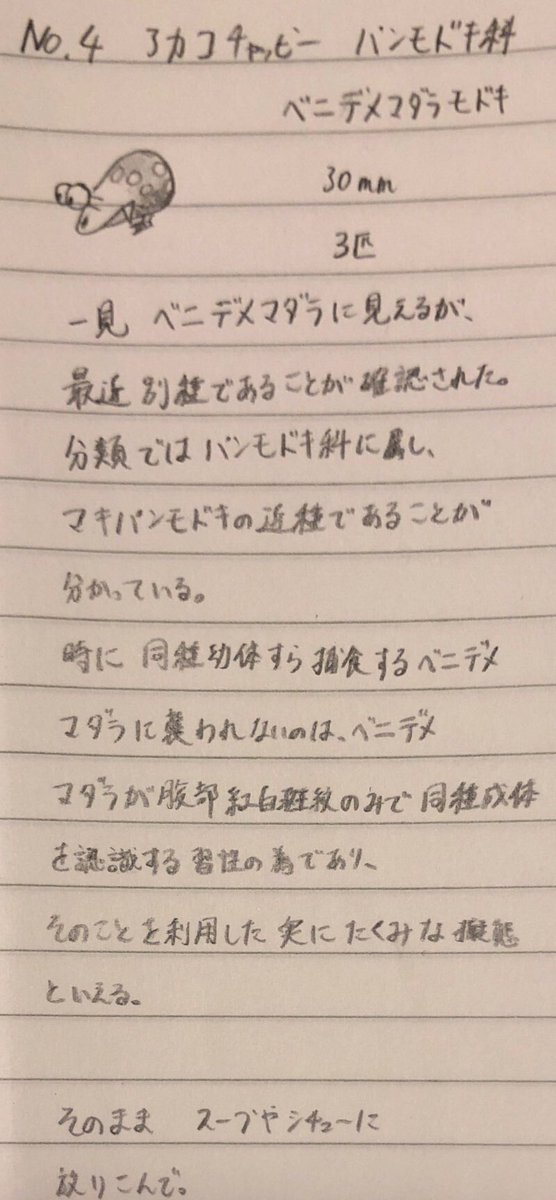 No.4 3カコチャッピー パンモドキ科
ベニデメマダラモドキ
30mm
3匹
一見 ベニデメマダラに見えるが、
最近 別種であることが確認された。
分類ではパンモドキ科に属し、
マキパンモドキの近種であることが
分かっている。
時に 同種幼体すら捕食するベニデメ
マダラに襲われないのは、ベニデメ
マダラが腹部紅白斑紋のみで同種成体
を認識する習性の為であり、
そのことを利用した実にたくみな擬態
といえる。
そのまま スープやシチューに
放りこんで。